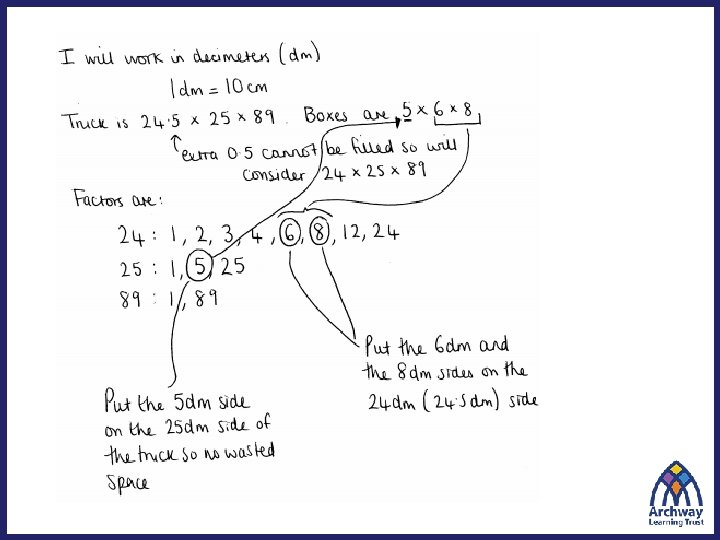 I will work in decimeters (dm)
1dm = 10cm
Truck is 24.5 × 25 × 89. Boxes are 5 × 6 × 8
extra 0.5 cannot be filled so will
consider 24 × 25 × 89
Factors are:
24 : 1, 2, 3, 4, 6, 8, 12, 24
25 : 1, 5, 25
89 : 1, 89
Put the 6dm and
the 8dm sides on the
24dm (24.5dm) side
Put the 5dm side
on the 25dm side of
the truck so no wasted
space
Archway
Learning Trust